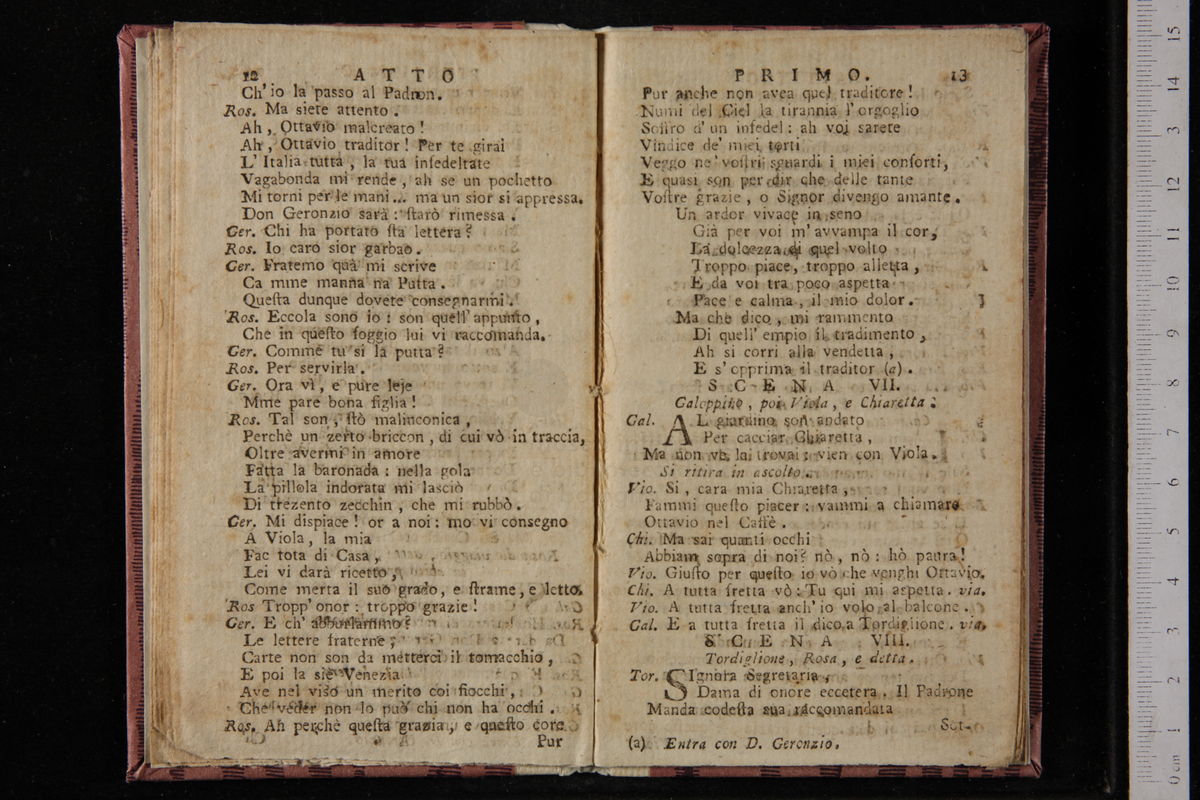 12 ATTO
Ch' io la passo al Padron.
Ros. Ma siete attento.
Ah, Ottavio malcreato!
Ah, Ottavio traditor! Per te girai
L' Italia tutta, la tua infedeltate
Vagabonda mi rende, ah se un pochetto
Mi torni per le mani... ma un sior si appressa.
Don Geronzio sarà: ſtarò rimessa.
Ger. Chi ha portato ſta lettera?
Ros. Io caro sior garbao.
Ger. Fratemo quà mi scrive
Ca mme manna na Putta.
Queſta dunque dovete consegnarmi.
Ros. Eccola sono io: son quell' appunto,
Che in queſto foggio lui vi raccomanda.
Ger. Comme tu si la putta?
Ros. Per servirla.
Ger. Ora vì, e pure leje
Mme pare bona figlia!
Ros. Tal son, ſtò malinconica,
Perchè un zerto briccon, di cui vò in traccia,
Oltre avermi in amore
Fatta la baronada: nella gola
La pillola indorata mi lasciò
Di trezento zecchin, che mi rubbò.
Ger. Mi dispiace! or a noi: mo vi consegno
A Viola, la mia
Fac tota di Casa,
Lei vi darà ricetto,
Come merta il suo grado, e ſtrame, e letto.
Ros Tropp' onor: troppo grazie!
Ger. E ch'
Le lettere fraterne;
Carte non son da metterci il tomacchio,
E poi la sie Venezia
Ave nel viso un merito coi fiocchi,
Che veder non lo può chi non ha occhi.
Ros. Ah perchè queſta grazia, e queſto core
Pur
PRIMO. 13
Pur anche non avea quel traditore!
Numi del Ciel la tirannia l' orgoglio
Soffro d' un infedel: ah voi sarete
Vindice de' miei torti
Veggo ne' voſtri sguardi i miei conforti,
E quasi son per dir che delle tante
Voſtre grazie, o Signor divengo amante.
Un ardor vivace in seno
Già per voi m' avvampa il cor,
La dolcezza di quel volto
Troppo piace, troppo alletta,
E da voi tra poco aspetta
Pace e calma, il mio dolor.
Ma che dico, mi rammento
Di quell' empio il tradimento,
Ah si corri alla vendetta,
E s' opprima il traditor (a).
SCENA VII.
Galoppino, poi Viola, e Chiaretta.
Gal. AL giardino son andato
Per cacciar Chiaretta,
Ma non ve la trovai: vien con Viola.
Si ritira in ascolto.
Vio. Si, cara mia Chiaretta,
Fammi queſto piacer: vammi a chiamare
Ottavio nel Caffè.
Chi. Ma sai quanti occhi
Abbiam sopra di noi? nò, nò: hò paura!
Vio. Giuſto per queſto io vò che venghi Ottavio.
Chi. A tutta fretta vò: Tu qui mi aspetta. via.
Vio. A tutta fretta anch' io volo al balcone.
Gal. E a tutta fretta il dico a Tordiglione. via.
SCENA VIII.
Tordiglione, Rosa, e detta.
Tor. SIgnora Segretaria,
Dama di onore eccetera. Il Padrone
Manda codeſta sua raccomandata
Sot-
(a) Entra con D. Geronzio.
0 cm 1 2 3 4 5 6 7 8 9 10 11 12 13 14 15